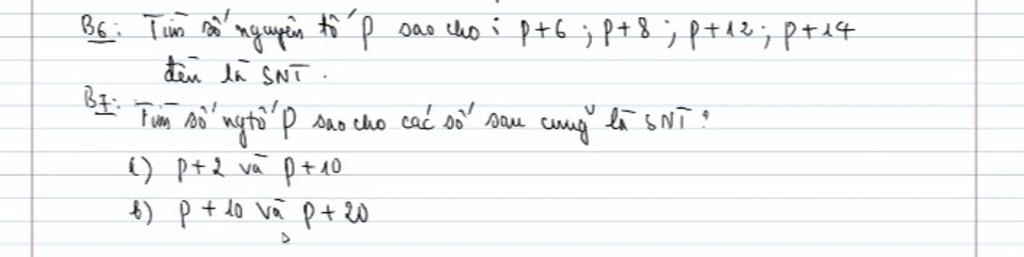 B6: Tìm số nguyên tố p sao cho: p+6; p+8; p+12; p+14
đều là SNT.
B7: Tìm số ngtố p sao cho các số sau cũng là SNT:
a) p+2 và p+10
b) p+10 và p+20